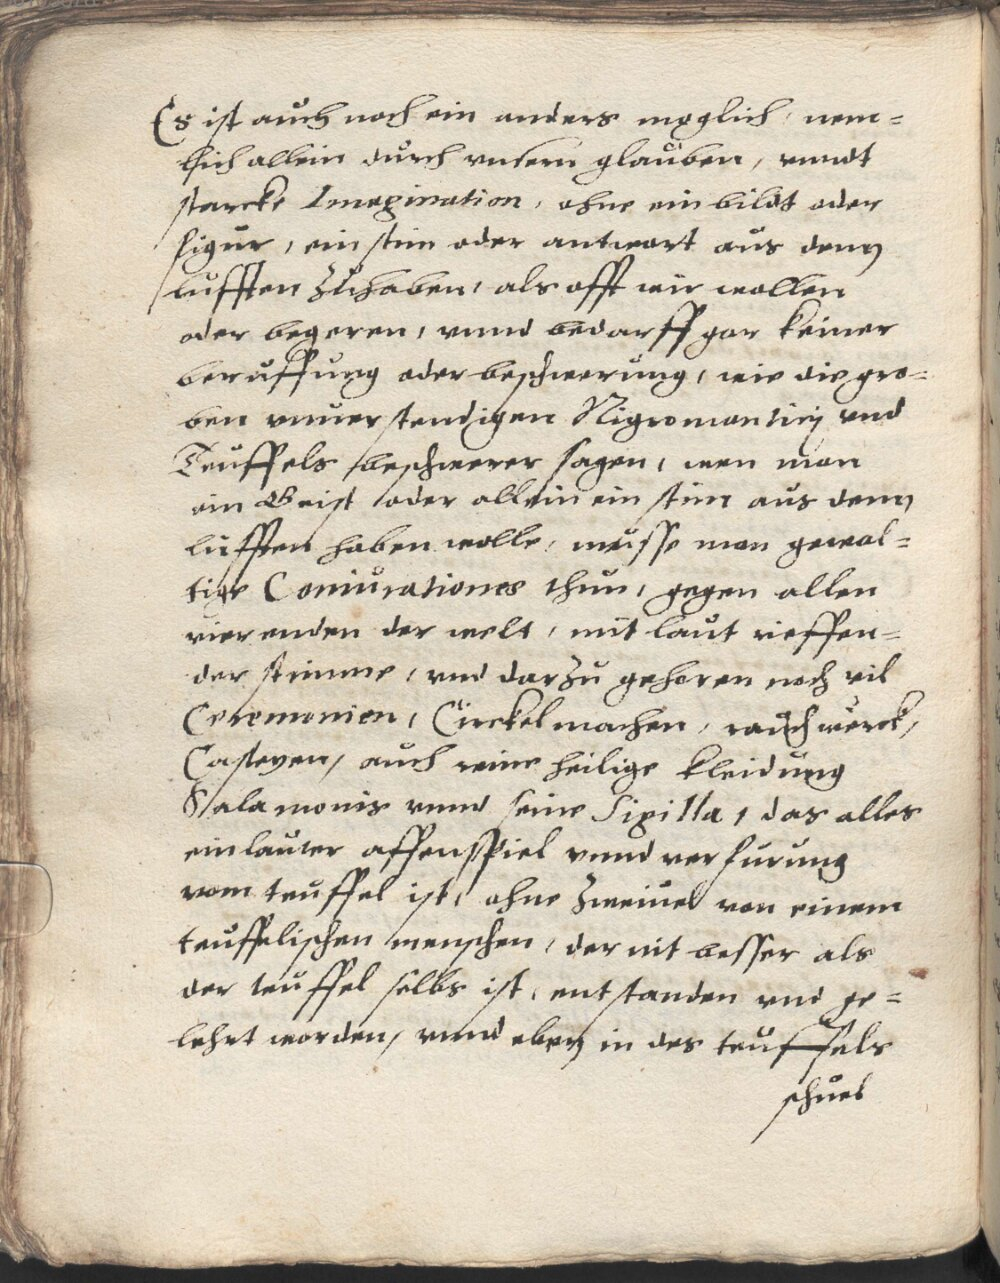 Es ist auch noch ein anders moglich, nem=
lich allein durch vnsern glauben, vnndt
starcke Imagination, ohne ein bildt oder
figur, ein stim oder antwort aus denn
lufften zuhaben, als offt wir wollen
oder begeren, vnnd bedarff gar keiner
beruffung oder beschwerung, wie die gro=
ben vnuerstendigen Nigromantici vnd
Teuffels beschwerer sagen, wen man
ein Geist oder allein ein stim aus denn
lufften haben wolle, müsse man gewal=
tige Coniurationes thun, gegen allen
vier enden der welt, mit laut rieffen=
der stimme, vnd darzu gehoren noch vil
Ceremonien, Circkel machen, rauchwerck,
Casteyen, auch reine heilige kleidung
Salamonis vnnd seine Sigilla, das alles
ein lauter affenspiel vnnd verfurung
vom teuffel ist, ohne zweiuel von einem
teuffelischen menschen, der nit besser als
der teuffel selbs ist, entstanden vnd ge=
lehrt worden, vnnd eben in des teuffels
schuel